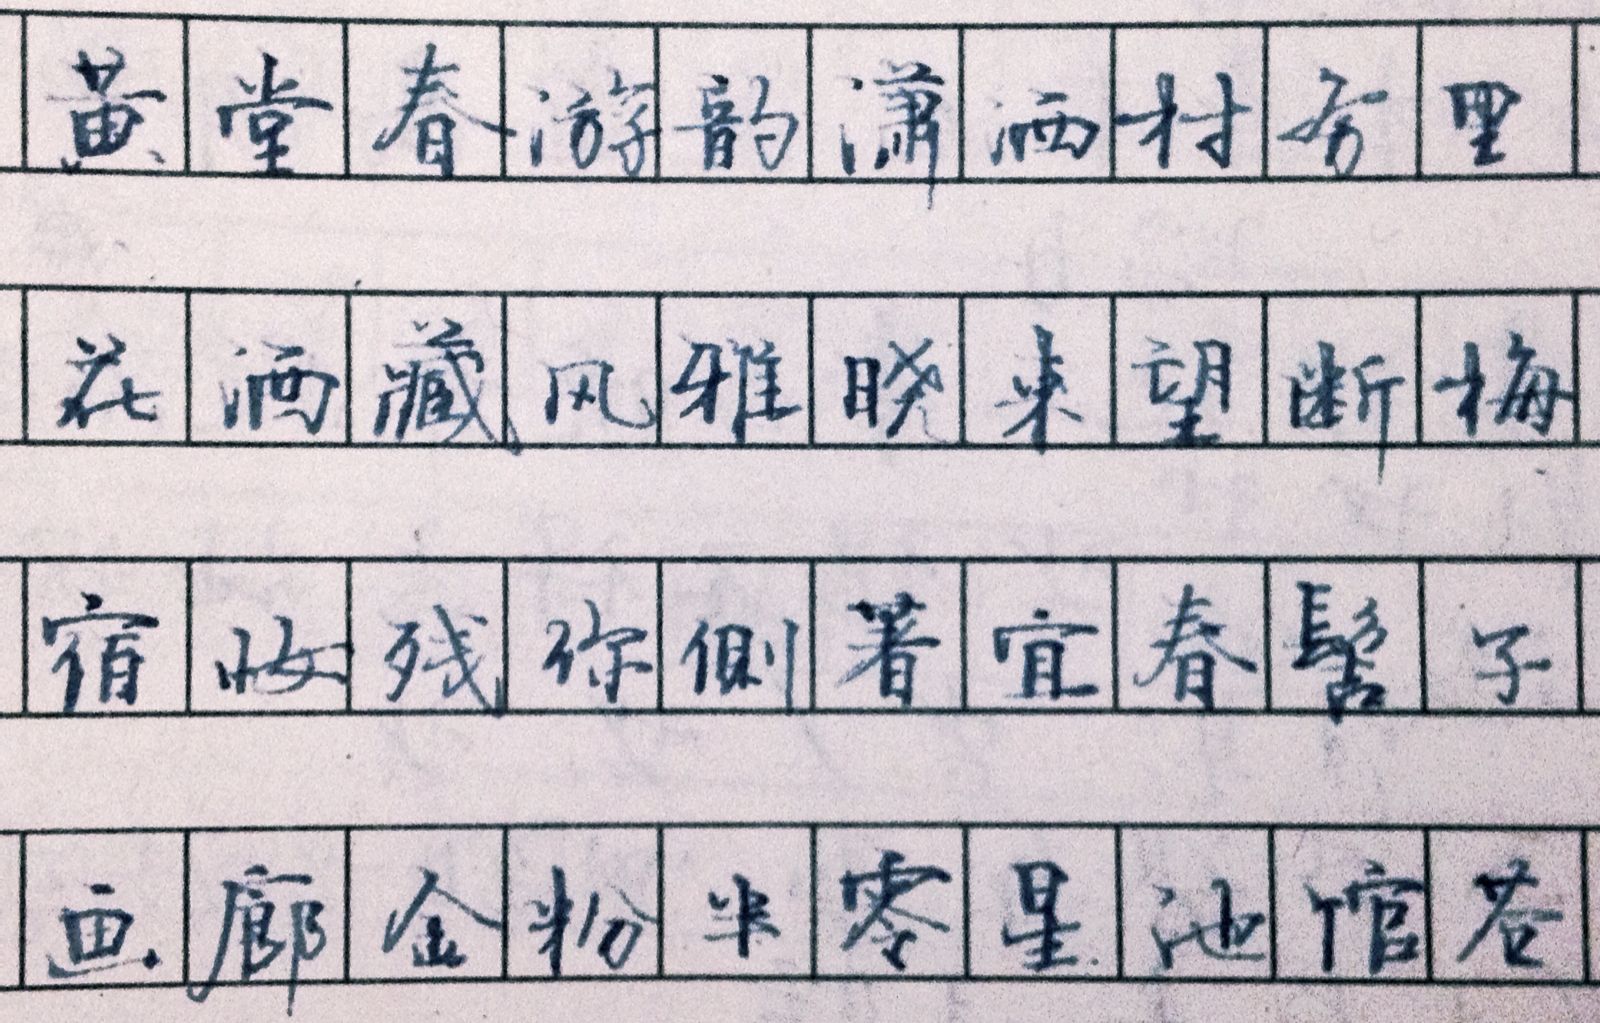 黄堂春游韵潇洒村务里
花酒藏风雅晓来望断梅
宿妆残你侧著宜春髻子
画廊金粉半零星池馆苍